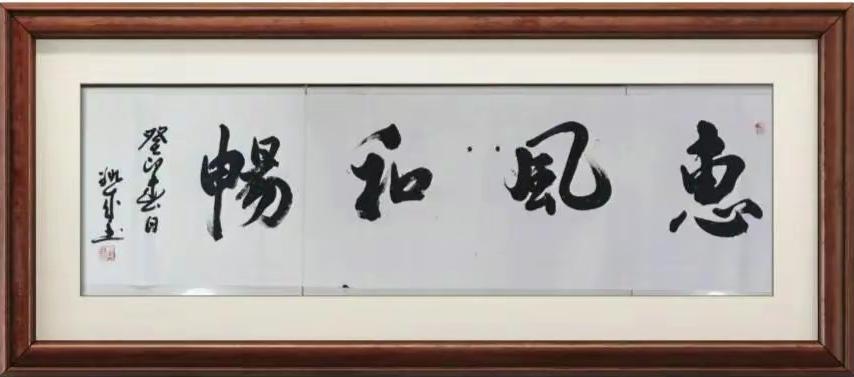 惠風和暢
癸卯春日